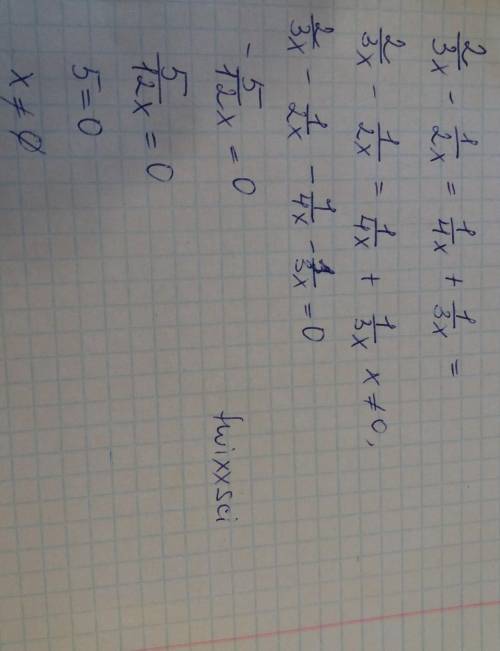 2/3x - 1/2x = 1/4x + 1/3x =
2/3x - 1/2x = 1/4x + 1/3x x ≠ 0,
2/3x - 1/2x - 1/4x - 1/3x = 0
- 5/12x = 0
5/12x = 0
5 = 0
x ≠ ∅
fwixxsci